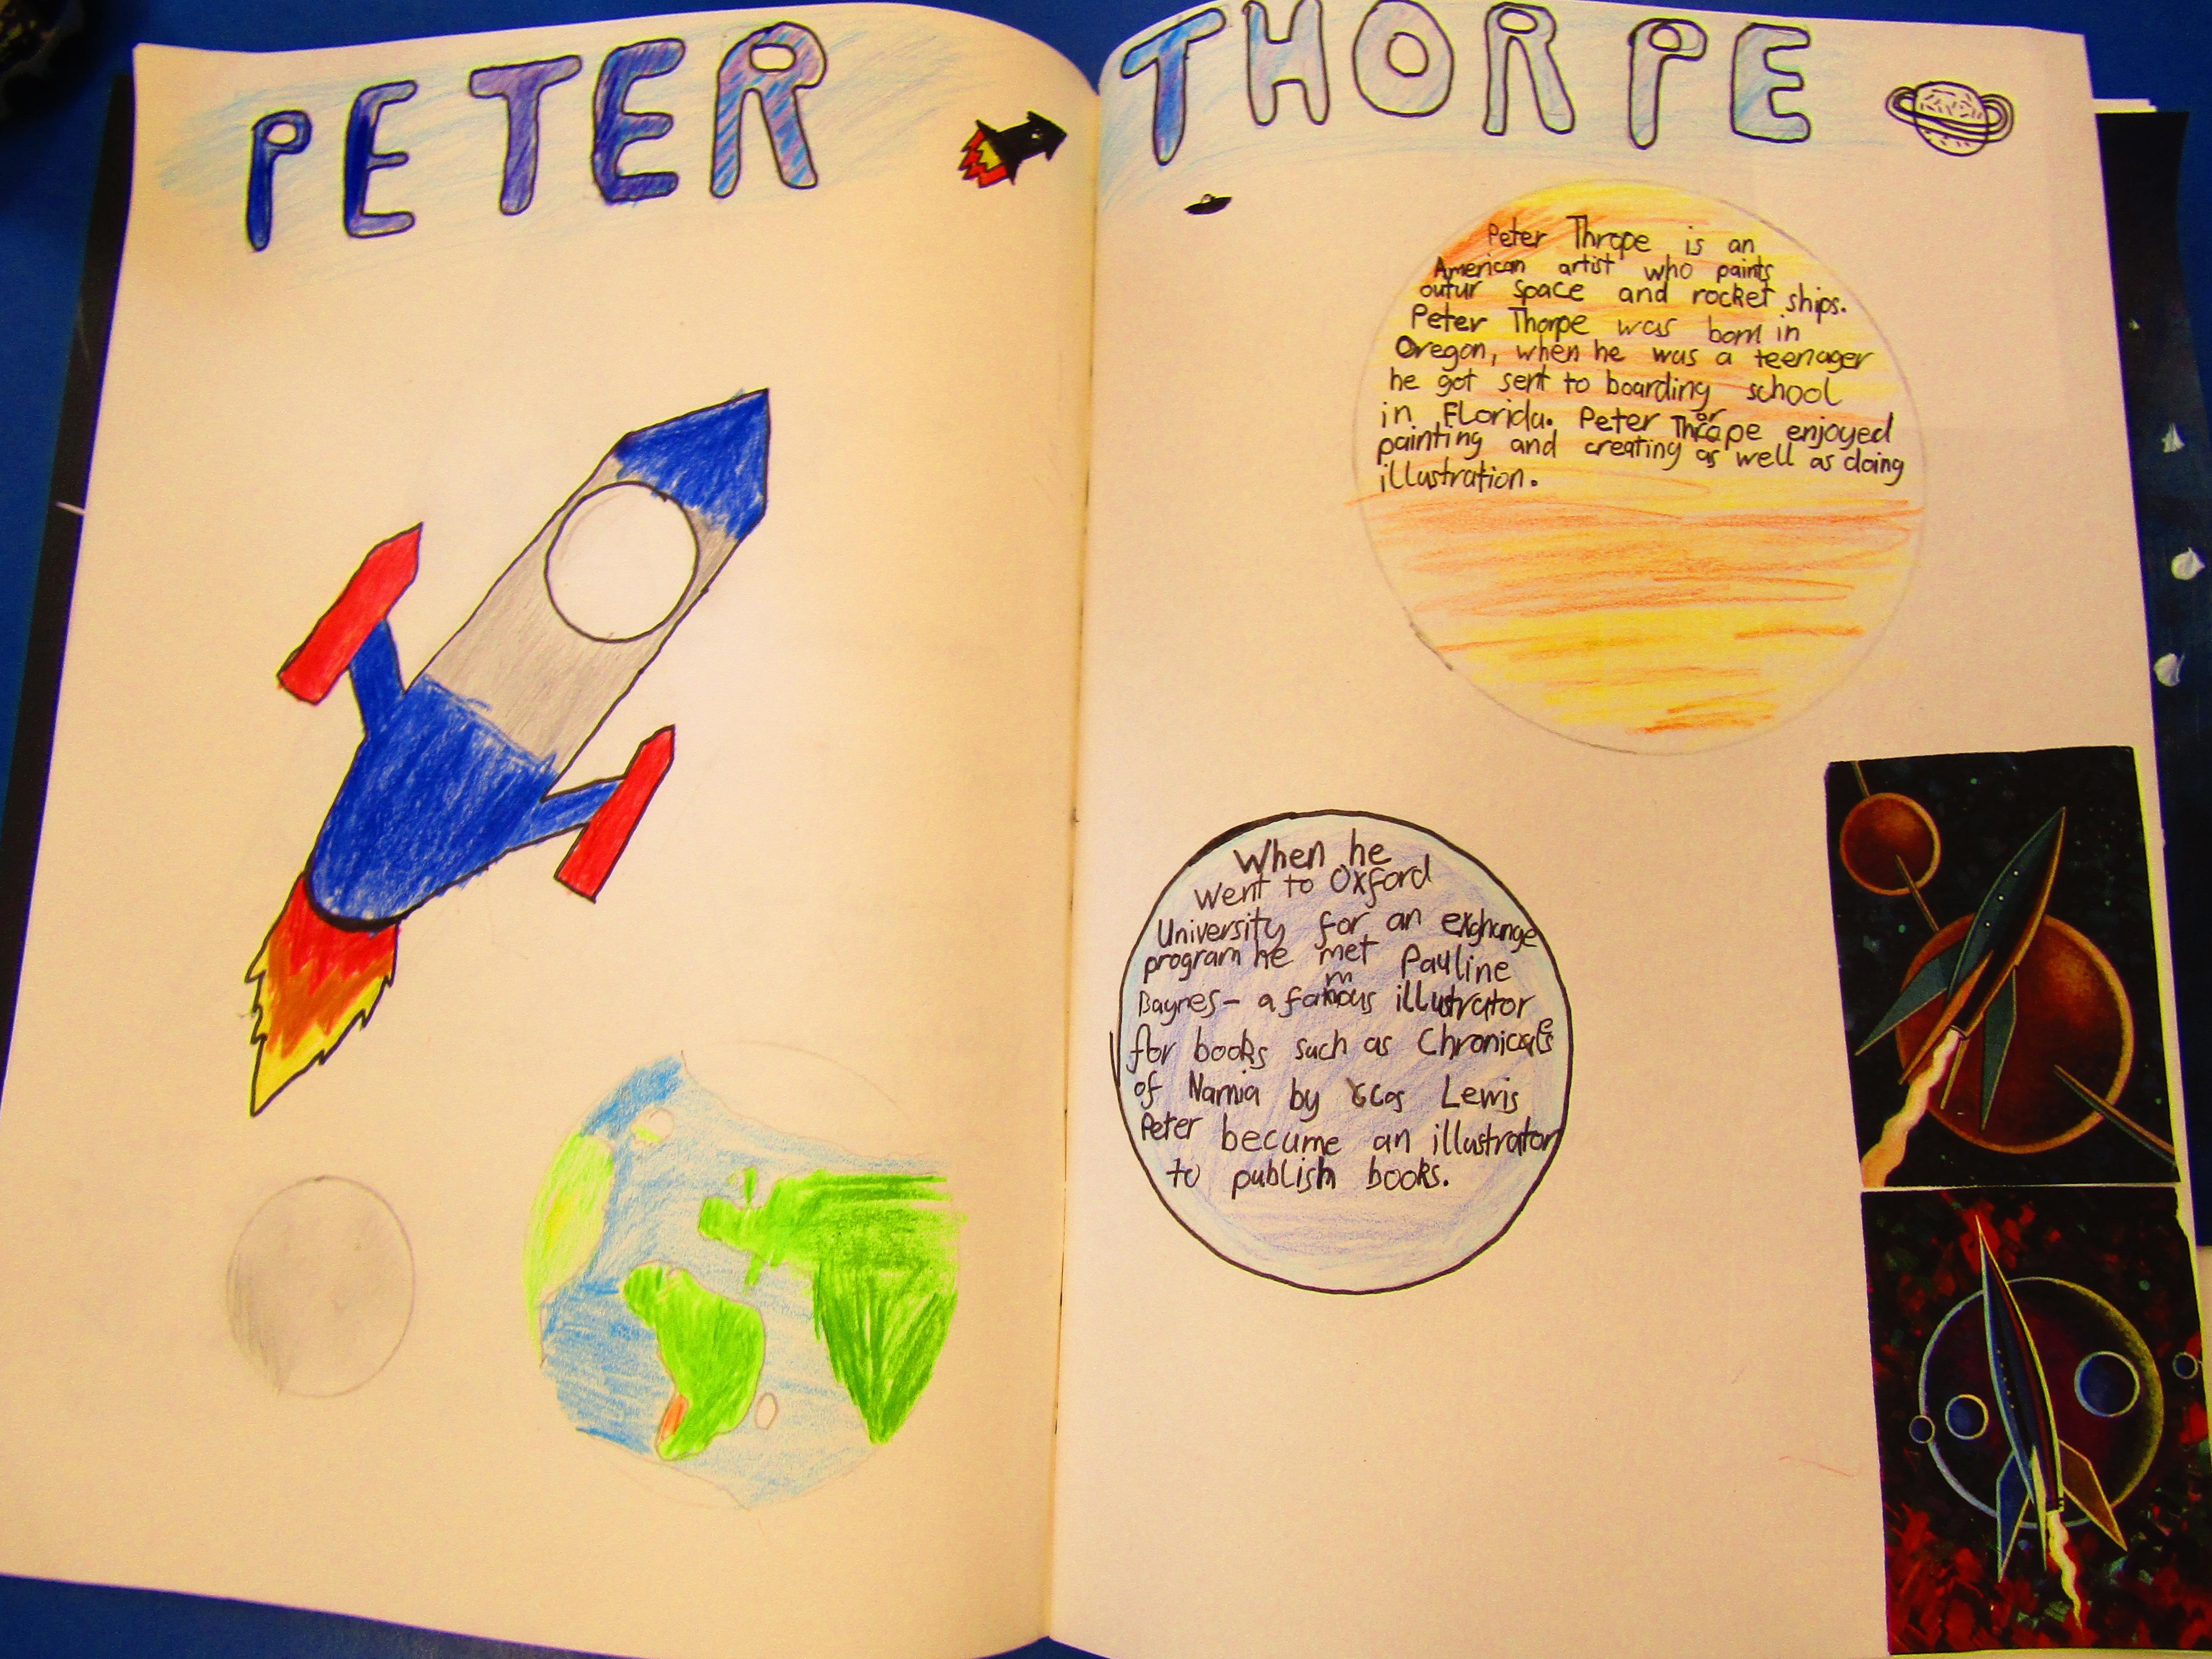 PETER THORPE
Peter Thrope is an
American artist who paints
outur space and rocket ships.
Peter Thorpe was born in
Oregon, when he was a teenager
he got sent to boarding school
in Florida. Peter Thorpe enjoyed
painting and creating as well as doing
illustration.
When he
went to Oxford
University for an exchange
program he met Pauline
Baynes - a famous illutrator
for books such as Chronicals
of Narnia by Lewis
Peter became an illustrator
to publish books.